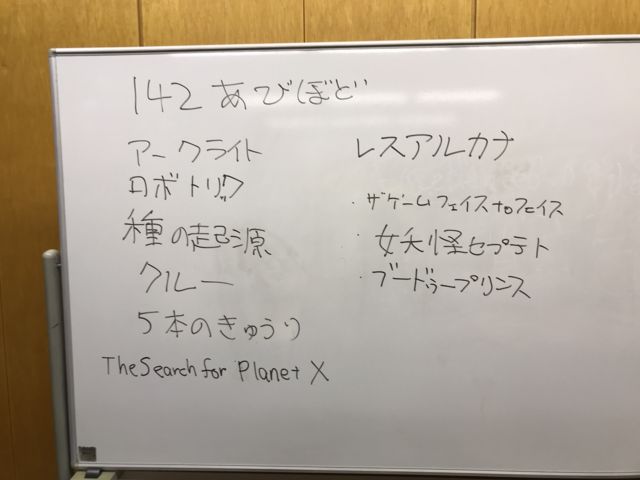 142 あびぼど
アークライト
ロボトリック
種の起源
クルー
5本のきゅうり
The Search for Planet X
レスアルカナ
・ザゲームフェイスtoフェイス
・妖怪セプテト
・ブードゥープリンス